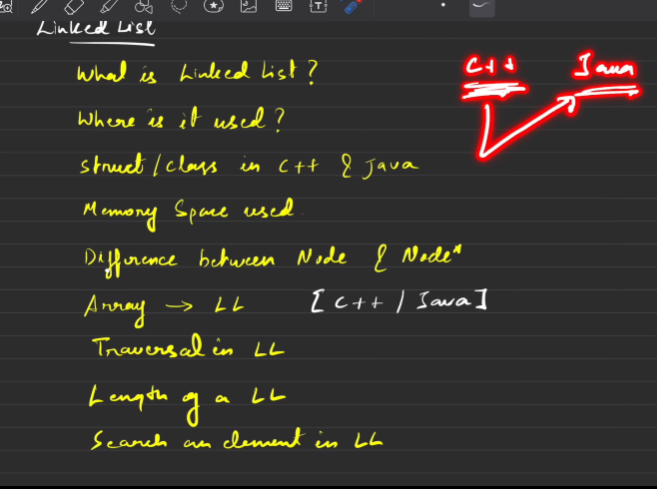 Linked List
What is Linked List?
C++ Java
Where is it used?
Struct/class in C++ & Java
Memory Space used.
Difference between Node & Node*
Array → LL [C++ / Java]
Traversal in LL
Length of a LL
Search an element in LL